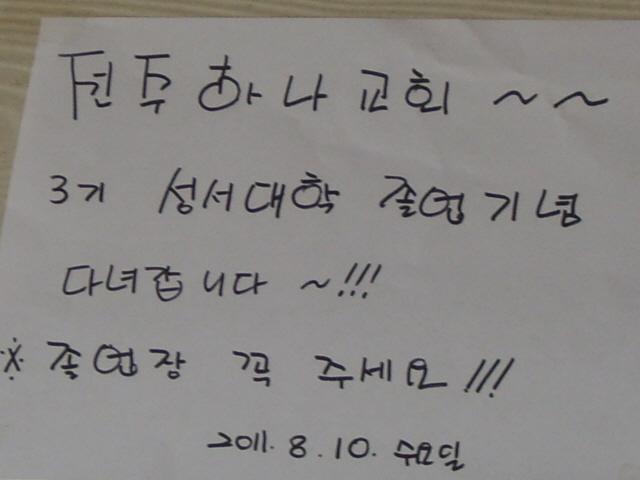 전주하나교회 ~~
3기 성서대학 졸업기념
다녀갑니다 ~!!!
※ 졸업장 꼭 주세요!!!
2011. 8. 10. 수요일